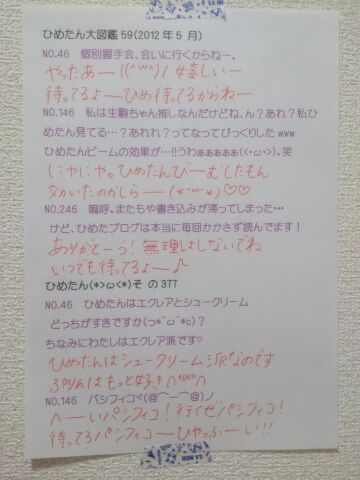 ひめたん大図鑑59(2012年5月)
NO.46 個別握手会、会いに行くからねー。
やったあー!(^ω^)/ 嬉しいー
待ってるよーひめ待ってるからねー
NO.146 私は生駒ちゃん推しなんだけどね、ん?あれ?私ひ
めたん見てる…?あれれ?ってなってびっくりしたwww
ひめたんビームの効果が…!!うわぁぁぁぁぁ(<・ω・>)。笑
にゃにゃ。ひめたんびーむしたもん
効いたのかしらー(*'ω'*)♡♡
NO.246 嗚呼。またもや書き込みが滞ってしまった…
けど、ひめたブログは本当に毎回かかさず読んでます!
ありがとーう!無理はしないでね
いつでも待ってるよー♪
ひめたん(*>ω<*)その377
NO.46 ひめたんはエクレアとシュークリーム
どっちがすきですか(っ*´ω`*c)?
ちなみにわたしはエクレア派です♡
ひめたんはシュークリーム派なのです
ぷりんはもっと好き ^ω^
NO.146 パシフィコヾ(@⌒ー⌒@)ノ
へーいパシフィコ!行くぜパシフィコ!
待ってろパシフィコーひやっふーい!!